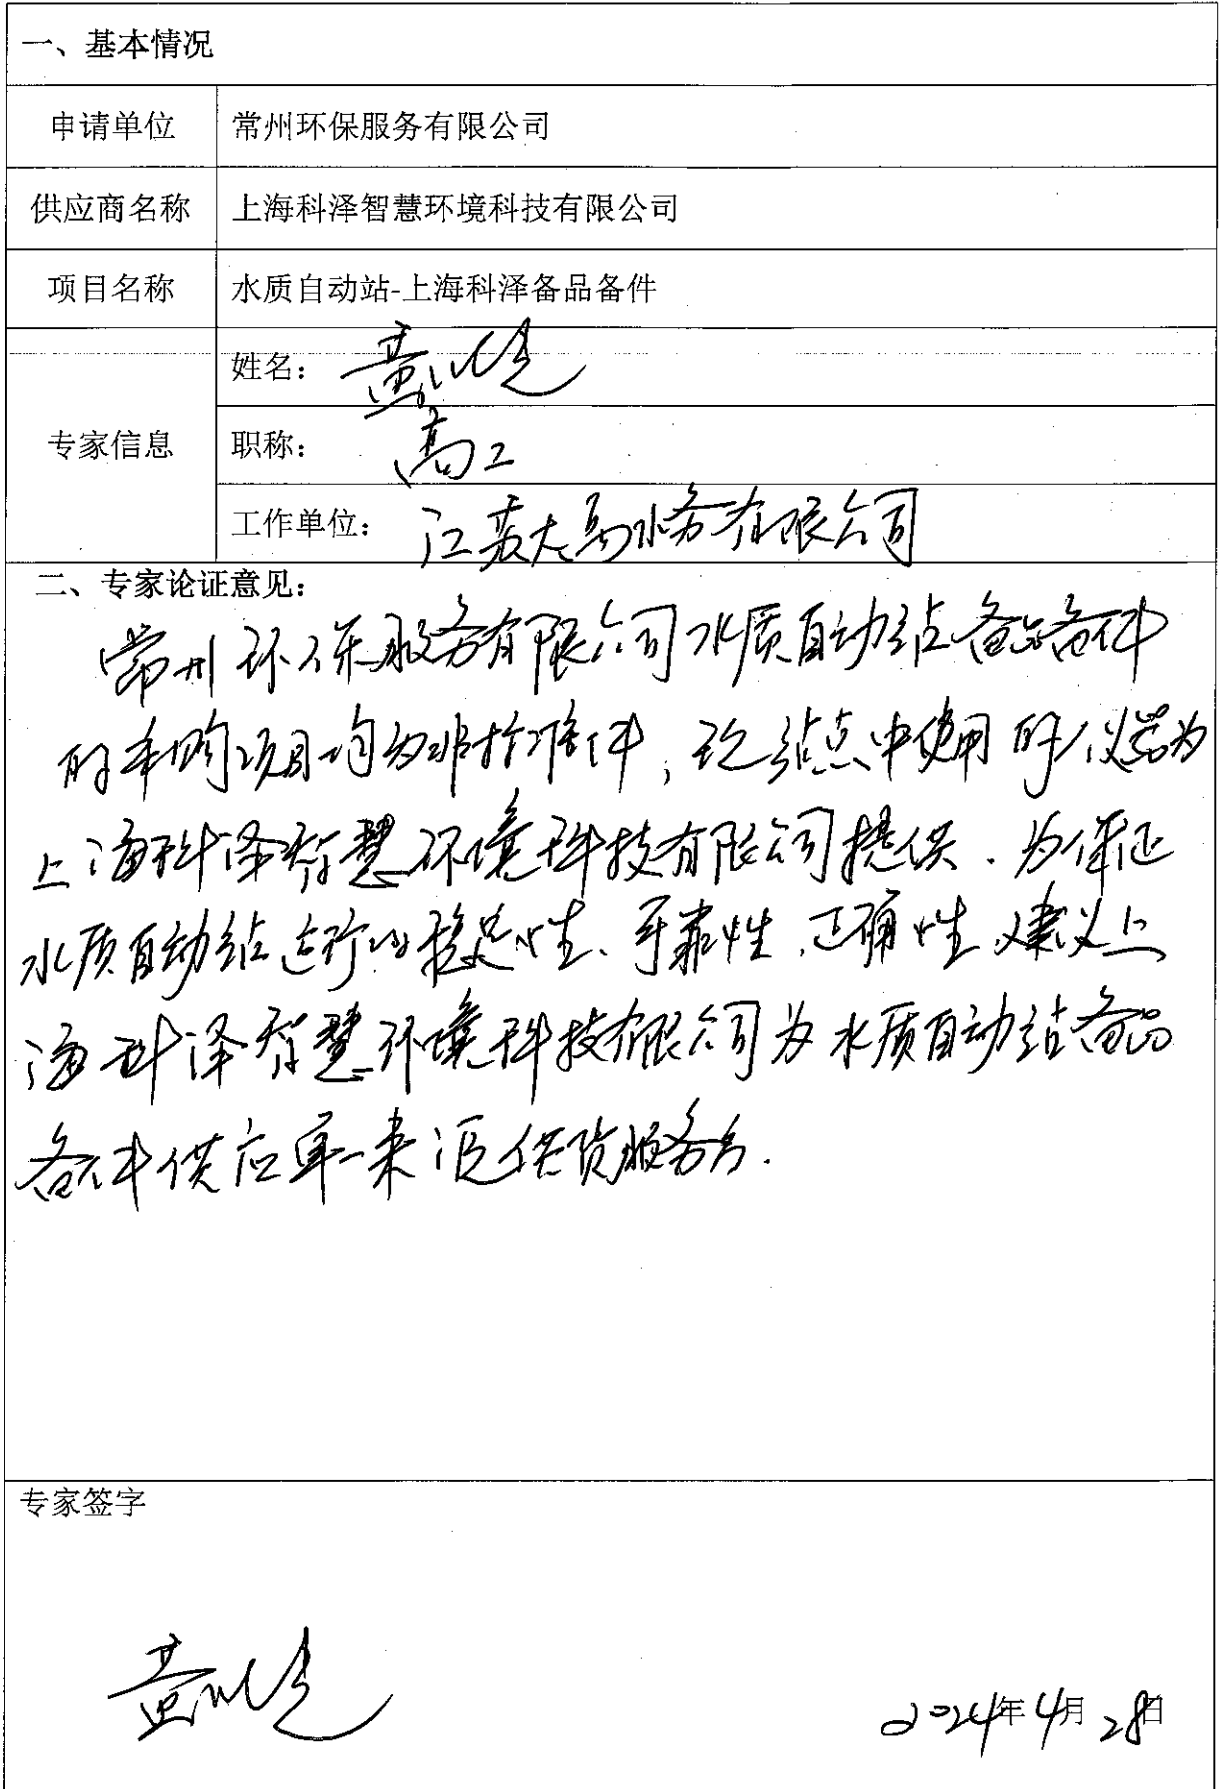 一、基本情况
申请单位 常州环保服务有限公司
供应商名称 上海科泽智慧环境科技有限公司
项目名称 水质自动站-上海科泽备品备件
专家信息
姓名: 黄
职称: 高工
工作单位: 江苏大禹水务有限公司
二、专家论证意见:
常州环保服务有限公司水质自动站备品备件
的采购项目均为非标准件,站点中使用的仪器为
上海科泽智慧环境科技有限公司提供.为保证
水质自动站运行的稳定性、可靠性、正确性建议上
海科泽智慧环境科技有限公司为水质自动站备品
备件供应单一来源供货服务商.
专家签字
黄
2024年4月28日